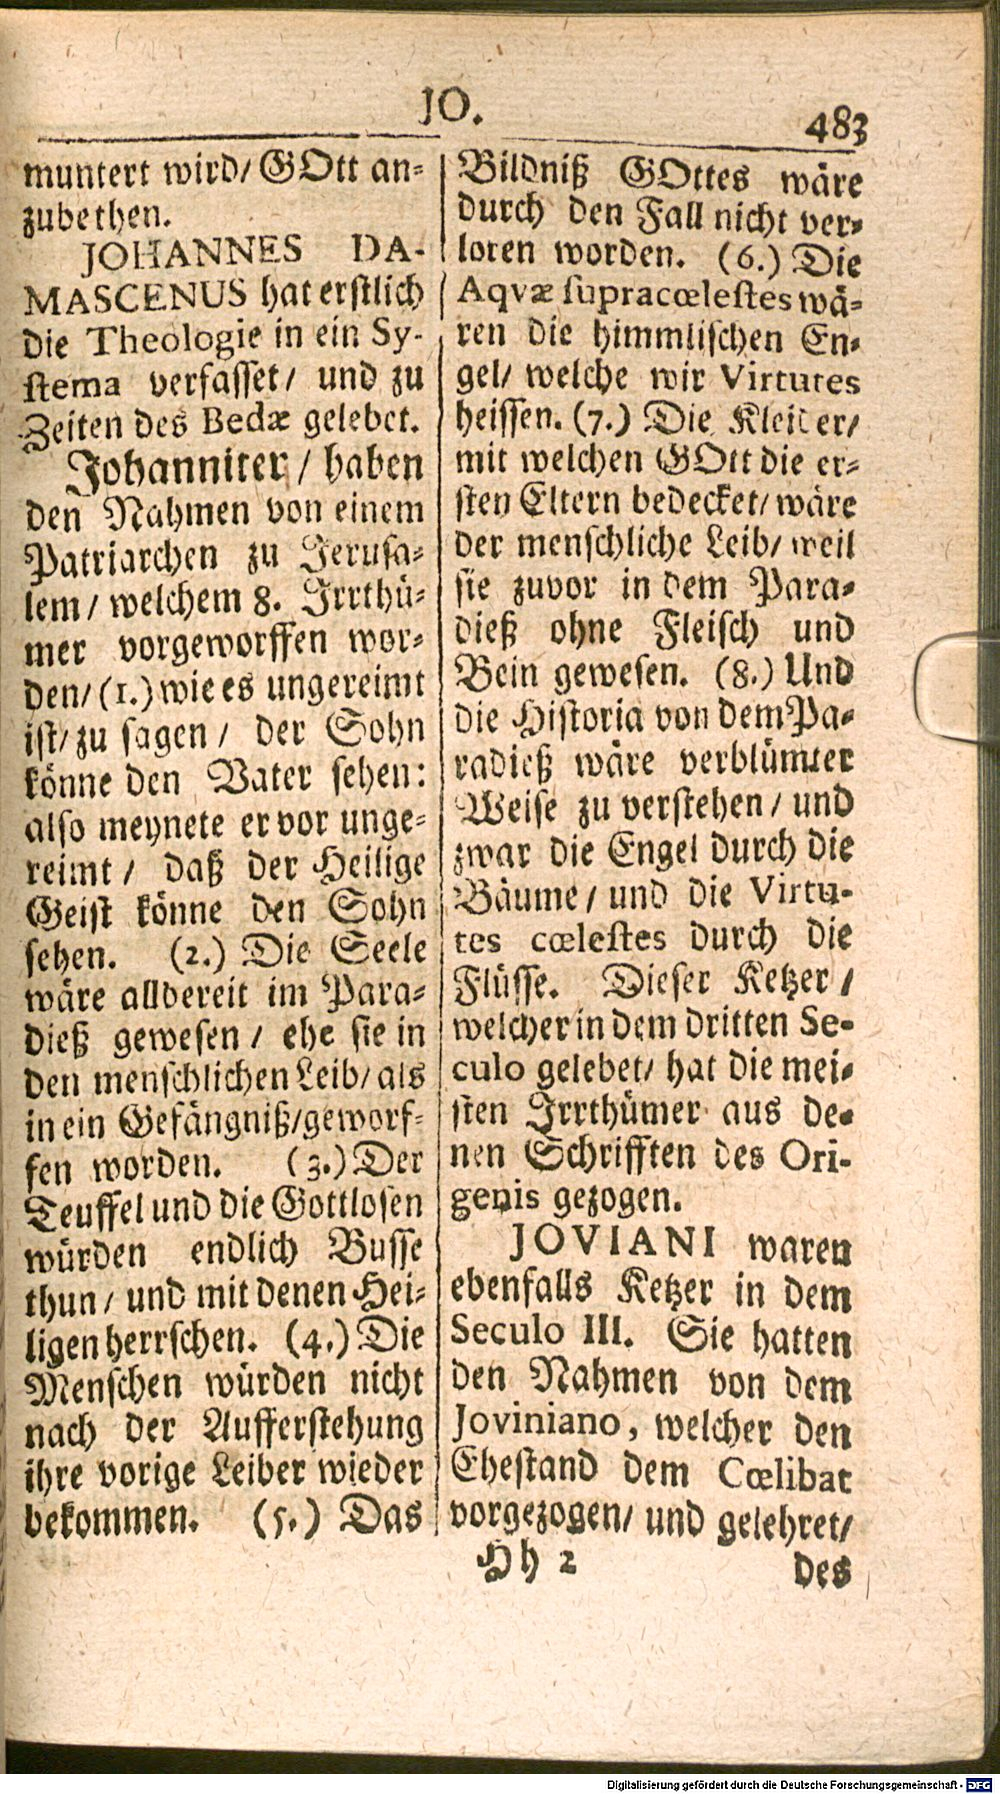 JO.
483
muntert wird/ GOtt an-
zubethen.
JOHANNES DA-
MASCENUS hat erstlich
die Theologie in ein Sy-
stema verfasset/ und zu
Zeiten des Bedæ gelebet.
Johanniter/ haben
den Nahmen von einem
Patriarchen zu Jerusa-
lem/ welchem 8. Irrthü-
mer vorgeworffen wor-
den/ (1.) wie es ungereimt
ist/ zu sagen/ der Sohn
könne den Vater sehen:
also meynete er vor unge-
reimt/ daß der Heilige
Geist könne den Sohn
sehen. (2.) Die Seele
wäre allbereit im Para-
dieß gewesen/ ehe sie in
den menschlichen Leib/ als
in ein Gefängniß/ geworf-
fen worden. (3.) Der
Teuffel und die Gottlosen
würden endlich Busse
thun/ und mit denen Hei-
ligen herrschen. (4.) Die
Menschen würden nicht
nach der Aufferstehung
ihre vorige Leiber wieder
bekommen. (5.) Das
Bildniß GOttes wäre
durch den Fall nicht ver-
loren worden. (6.) Die
Aqvæ supracœlestes wä-
ren die himmlischen En-
gel/ welche wir Virtutes
heissen. (7.) Die Kleider/
mit welchen GOtt die er-
sten Eltern bedecket/ wäre
der menschliche Leib/ weil
sie zuvor in dem Para-
dieß ohne Fleisch und
Bein gewesen. (8.) Und
die Historia von dem Pa-
radieß wäre verblümter
Weise zu verstehen/ und
zwar die Engel durch die
Bäume/ und die Virtu-
tes cœlestes durch die
Flüsse. Dieser Ketzer/
welcher in dem dritten Se-
culo gelebet/ hat die mei-
sten Irrthümer aus de-
nen Schrifften des Ori-
genis gezogen.
JOVIANI waren
ebenfalls Ketzer in dem
Seculo III. Sie hatten
den Nahmen von dem
Joviniano, welcher den
Ehestand dem Cœlibat
vorgezogen/ und gelehret/
Hh 2
des
Digitalisierung gefördert durch die Deutsche Forschungsgemeinschaft - DFG